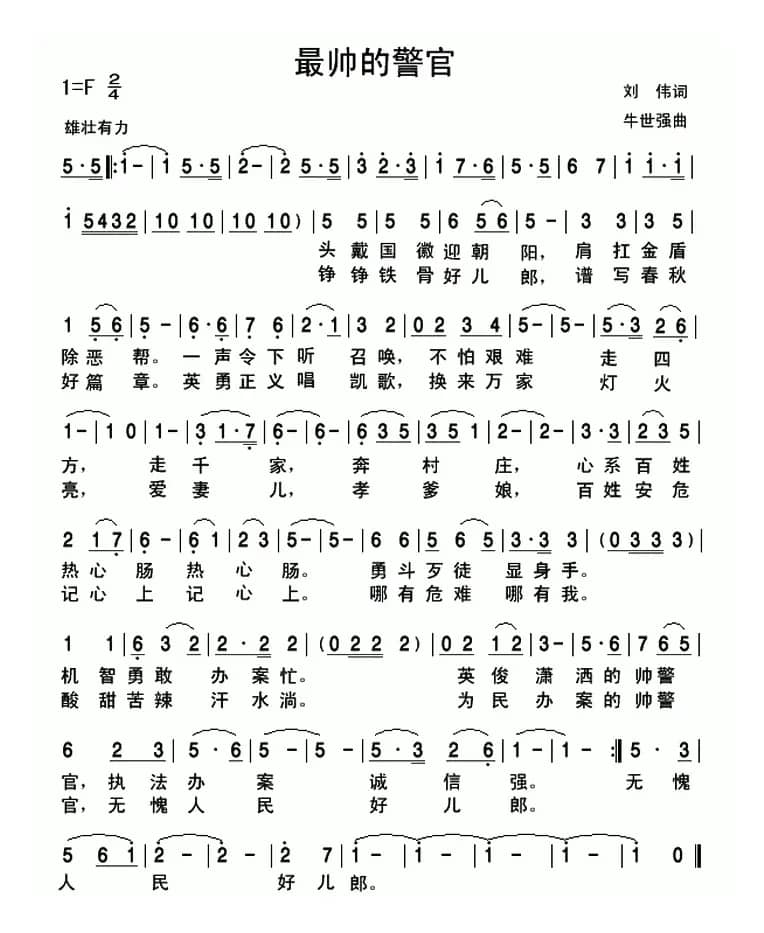 最帅的警官
1=F 2/4
刘 伟词
雄壮有力
牛世强曲
5·5 ‖: 1 - | 1 5·5 | 2 - | 2 5·5 | 3 2·3 | 1 7·6 | 5·5 | 6 7 | 1 1·1 |
1 5432 | 10 10 | 10 10 ) | 5 5 | 5 5 | 6 5 6 | 5 - | 3 3 | 3 5 |
头 戴 国 徽 迎 朝 阳, 肩 扛 金 盾
铮 铮 铁 骨 好 儿 郎, 谱 写 春 秋
1 5 6 | 5 - | 6·6 | 7 6 | 2·1 | 3 2 | 0 2 3 4 | 5 - | 5 - | 5·3 2 6 |
除 恶 帮。 一 声 令 下 听 召 唤, 不 怕 艰 难 走 四
好 篇 章。 英 勇 正 义 唱 凯 歌, 换 来 万 家 灯 火
1 - | 1 0 | 2 - | 3 1·7 | 6 - | 6 - | 6 3 5 | 6 3 5 | 2 - | 2 - | 3·5 | 2 3 5 |
方, 走 千 家, 奔 村 庄, 心 系 百 姓
亮, 爱 妻 儿, 孝 爹 娘, 百 姓 安 危
2 1 7 | 6 - | 6 1 | 2 3 | 5 - | 5 - | 6 6 | 5 6 5 | 3·3 3 | ( 0 3 3 3 3 ) |
热 心 肠 热 心 肠。 勇 斗 歹 徒 显 身 手。
记 心 上 记 心 上。 哪 有 危 难 哪 有 我。
1 1 | 6 3 2 | 2·2 2 | ( 0 2 2 2 2 ) | 0 2 1 2 | 3 - | 5·6 | 7 6 5 |
机 智 勇 敢 办 案 忙。 英 俊 潇 洒 的 帅 警
酸 甜 苦 辣 汗 水 淌。 为 民 办 案 的 帅 警
6 2 3 | 5·6 | 5 - | 5 - | 5·3 | 2 6 | 1 - | 1 - :‖ 5·3 |
官, 执 法 办 案 诚 信 强。 无 愧
官, 无 愧 人 民 好 儿 郎。
5 6 1 | 2 - | 2 - | 2 7 | 1 - | 1 - | 1 - | 1 - | 1 0 ‖
人 民 好 儿 郎。